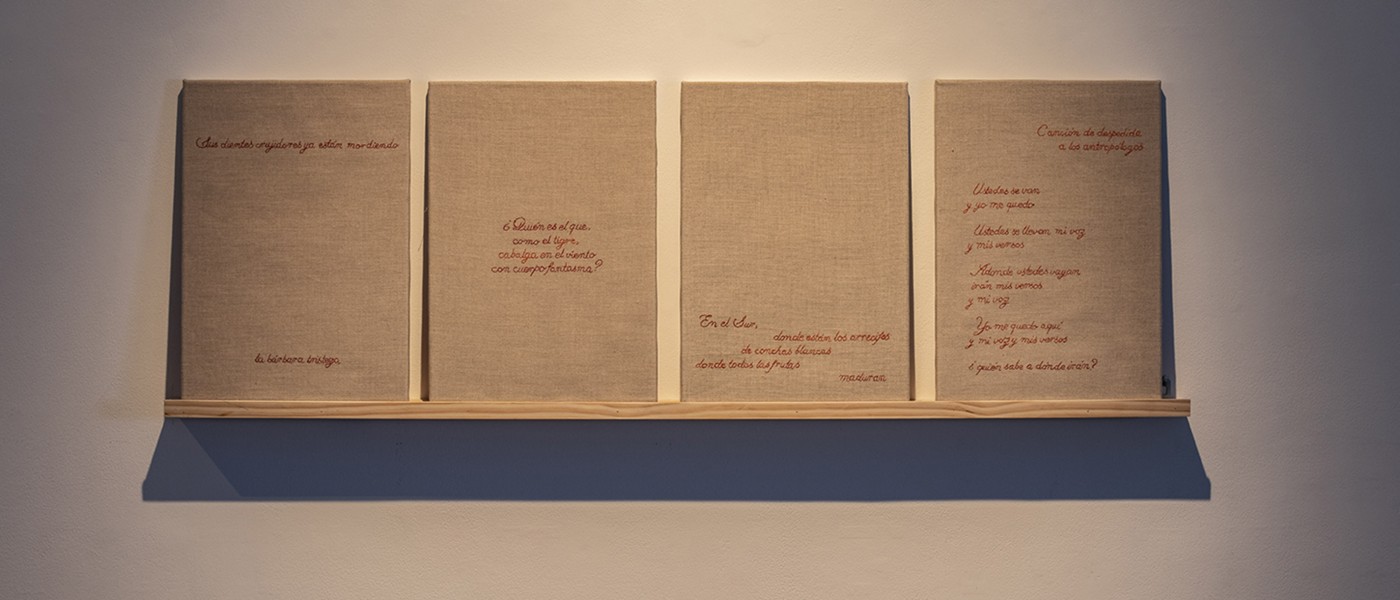 Sus dientes roedores ya están mordiendo
la bárbara tristeza
¿Quién es el que,
como el tigre,
cabalga en el viento
con cuerpo fantasma?
En el Sur,
donde están los arrecifes
de conchas blancas
donde todas las frutas
maduran
Canción de despedida
a los antropólogos
Ustedes se van
y yo me quedo
Ustedes se llevan mi voz
y mis versos
Adonde ustedes vayan
irán mis versos
y mi voz
Yo me quedo aquí
y mi voz y mis versos
¿quién sabe a dónde irán?